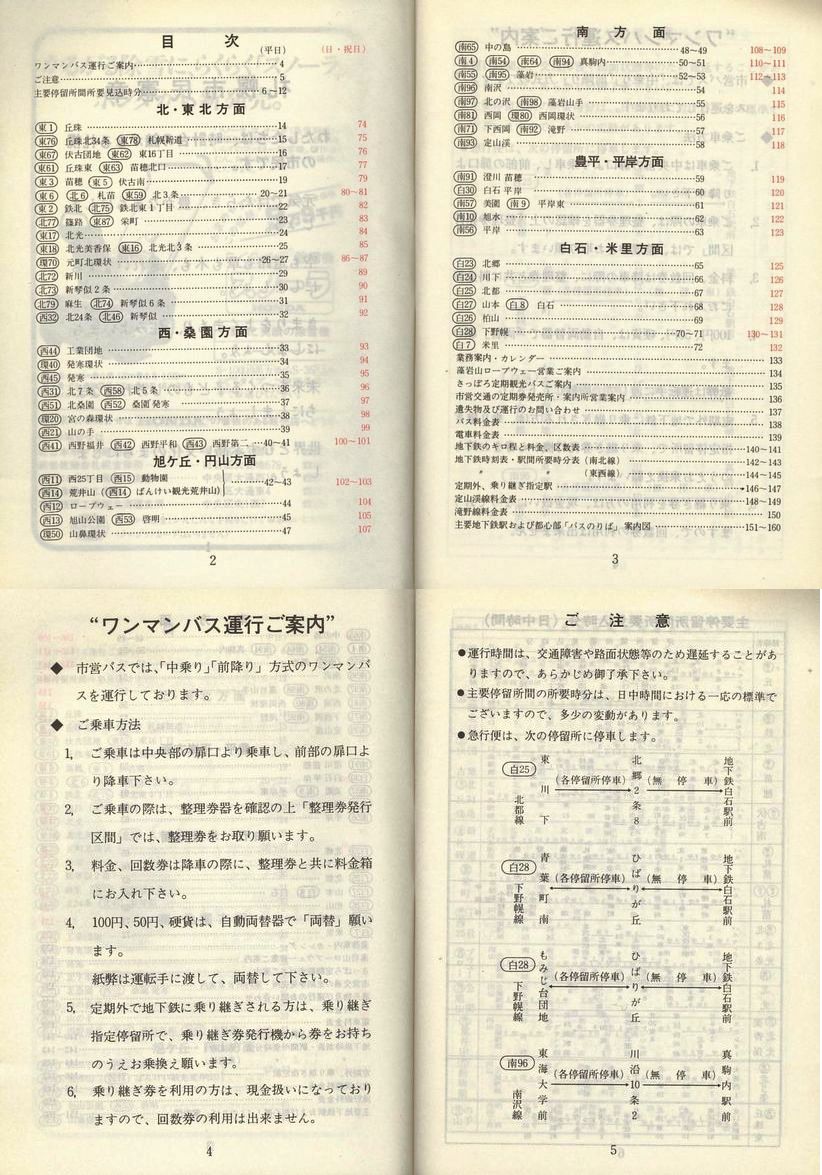 目　次
(平日)　(日・祝日)
ワンマンバス運行ご案内…4
ご注意…5
主要停留所間所要見込時分…6～12
北・東北方面
東1 丘珠…14 74
東76 丘珠北34条 東78 札幌新道…15 75
東67 伏古団地 東62 東16丁目…16 76
東61 丘珠東 東63 苗穂北口…17 77
東3 苗穂 東5 伏古南…19 79
東6 北6 札苗 東59 北3条…20～21 80～81
東2 鉄北 北75 鉄北東1丁目…22 82
北77 篠路 東87 栄町…23 83
東17 北光…24 84
東18 北光美香保 東16 北光北3条…25 85
環70 元町北環状…26～27 86～87
北72 新川…29 89
北73 新琴似2条…30 90
北79 麻生 北74 新琴似6条…31 91
西32 北24条 北46 新琴似…32 92
西・桑園方面
西44 工業団地…33 93
環40 発寒環状…34 94
西45 発寒…35 95
西31 北7条 西58 北5条…36 96
西51 北桑園 西52 桑園発寒…37 97
環20 宮の森環状…38 98
西21 山の手…39 99
西41 西野福井 西42 西野平和 西43 西野第二…40～41 100～101
旭ケ丘・円山方面
西11 西25丁目 西15 動物園
西14 荒井山 (西14 ばんけい観光荒井山) 42～43 102～103
西12 ロープウェー…44 104
西13 旭山公園 西53 啓明…45 105
環50 山鼻環状…47 107
2
南方面
南65 中の島…48～49 108～109
南4 南54 南64 南94 真駒内…50～51 110～111
南55 南95 藻岩…52～53 112～113
南96 南沢…54 114
南97 北の沢 南98 藻岩山手…55 115
南81 西岡 環80 西岡環状…56 116
南71 下西岡 南92 滝野…57 117
南93 定山渓…58 118
豊平・平岸方面
南91 澄川 苗穂…59 119
白30 白石 平岸…60 120
南57 美園 南9 平岸東…61 121
南10 旭水…62 122
南56 平岸…63 123
白石・米里方面
白23 北郷…65 125
白24 川下…66 126
白25 北都…67 127
白27 山本 白8 白石…68 128
白26 柏山…69 129
白28 下野幌…70～71 130～131
白7 米里…72 132
業務案内・カレンダー…133
藻岩山ロープウェー営業ご案内…134
さっぽろ定期観光バスご案内…135
市営交通の定期券発売所・案内所営業案内…136
遺失物及び運行のお問い合わせ…137
バス料金表…138
電車料金表…139
地下鉄のキロ程と料金、区数表…140～141
地下鉄時刻表・駅間所要時分表 (南北線)…142～143
〃　〃 (東西線)…144～145
定期外、乗り継ぎ指定駅…146～147
定山渓線料金表…148～149
滝野線料金表…150
主要地下鉄駅および都心部「バスのりば」案内図…151～160
3
“ワンマンバス運行ご案内”
◆ 市営バスでは、「中乗り」「前降り」方式のワンマンバ
スを運行しております。
◆ ご乗車方法
1. ご乗車は中央部の扉口より乗車し、前部の扉口よ
り降車下さい。
2. ご乗車の際は、整理券器を確認の上「整理券発行
区間」では、整理券をお取り願います。
3. 料金、回数券は降車の際に、整理券と共に料金箱
にお入れ下さい。
4. 100円、50円、硬貨は、自動両替器で「両替」願い
ます。
紙幣は運転手に渡して、両替して下さい。
5. 定期外で地下鉄に乗り継ぎされる方は、乗り継ぎ
指定停留所で、乗り継ぎ券発行機から券をお持ち
のうえお乗換え願います。
6. 乗り継ぎ券を利用の方は、現金扱いになっており
ますので、回数券の利用は出来ません。
4
ご注意
●運行時間は、交通障害や路面状態等のため遅延することがあ
りますので、あらかじめ御了承下さい。
●主要停留所間の所要時分は、日中時間における一応の標準で
ございますので、多少の変動があります。
●急行便は、次の停留所に停車します。
白25 北都線 東川下 (各停留所停車) 北郷2条8 (無停車) 地下鉄白石駅前
白28 下野幌線 青葉町南 (各停留所停車) ひばりが丘 (無停車) 地下鉄白石駅前
白28 下野幌線 もみじ台団地 (各停留所停車) ひばりが丘 (無停車) 地下鉄白石駅前
南96 南沢線 東海大学前 (各停留所停車) 川沿10条2 (無停車) 真駒内駅前
5